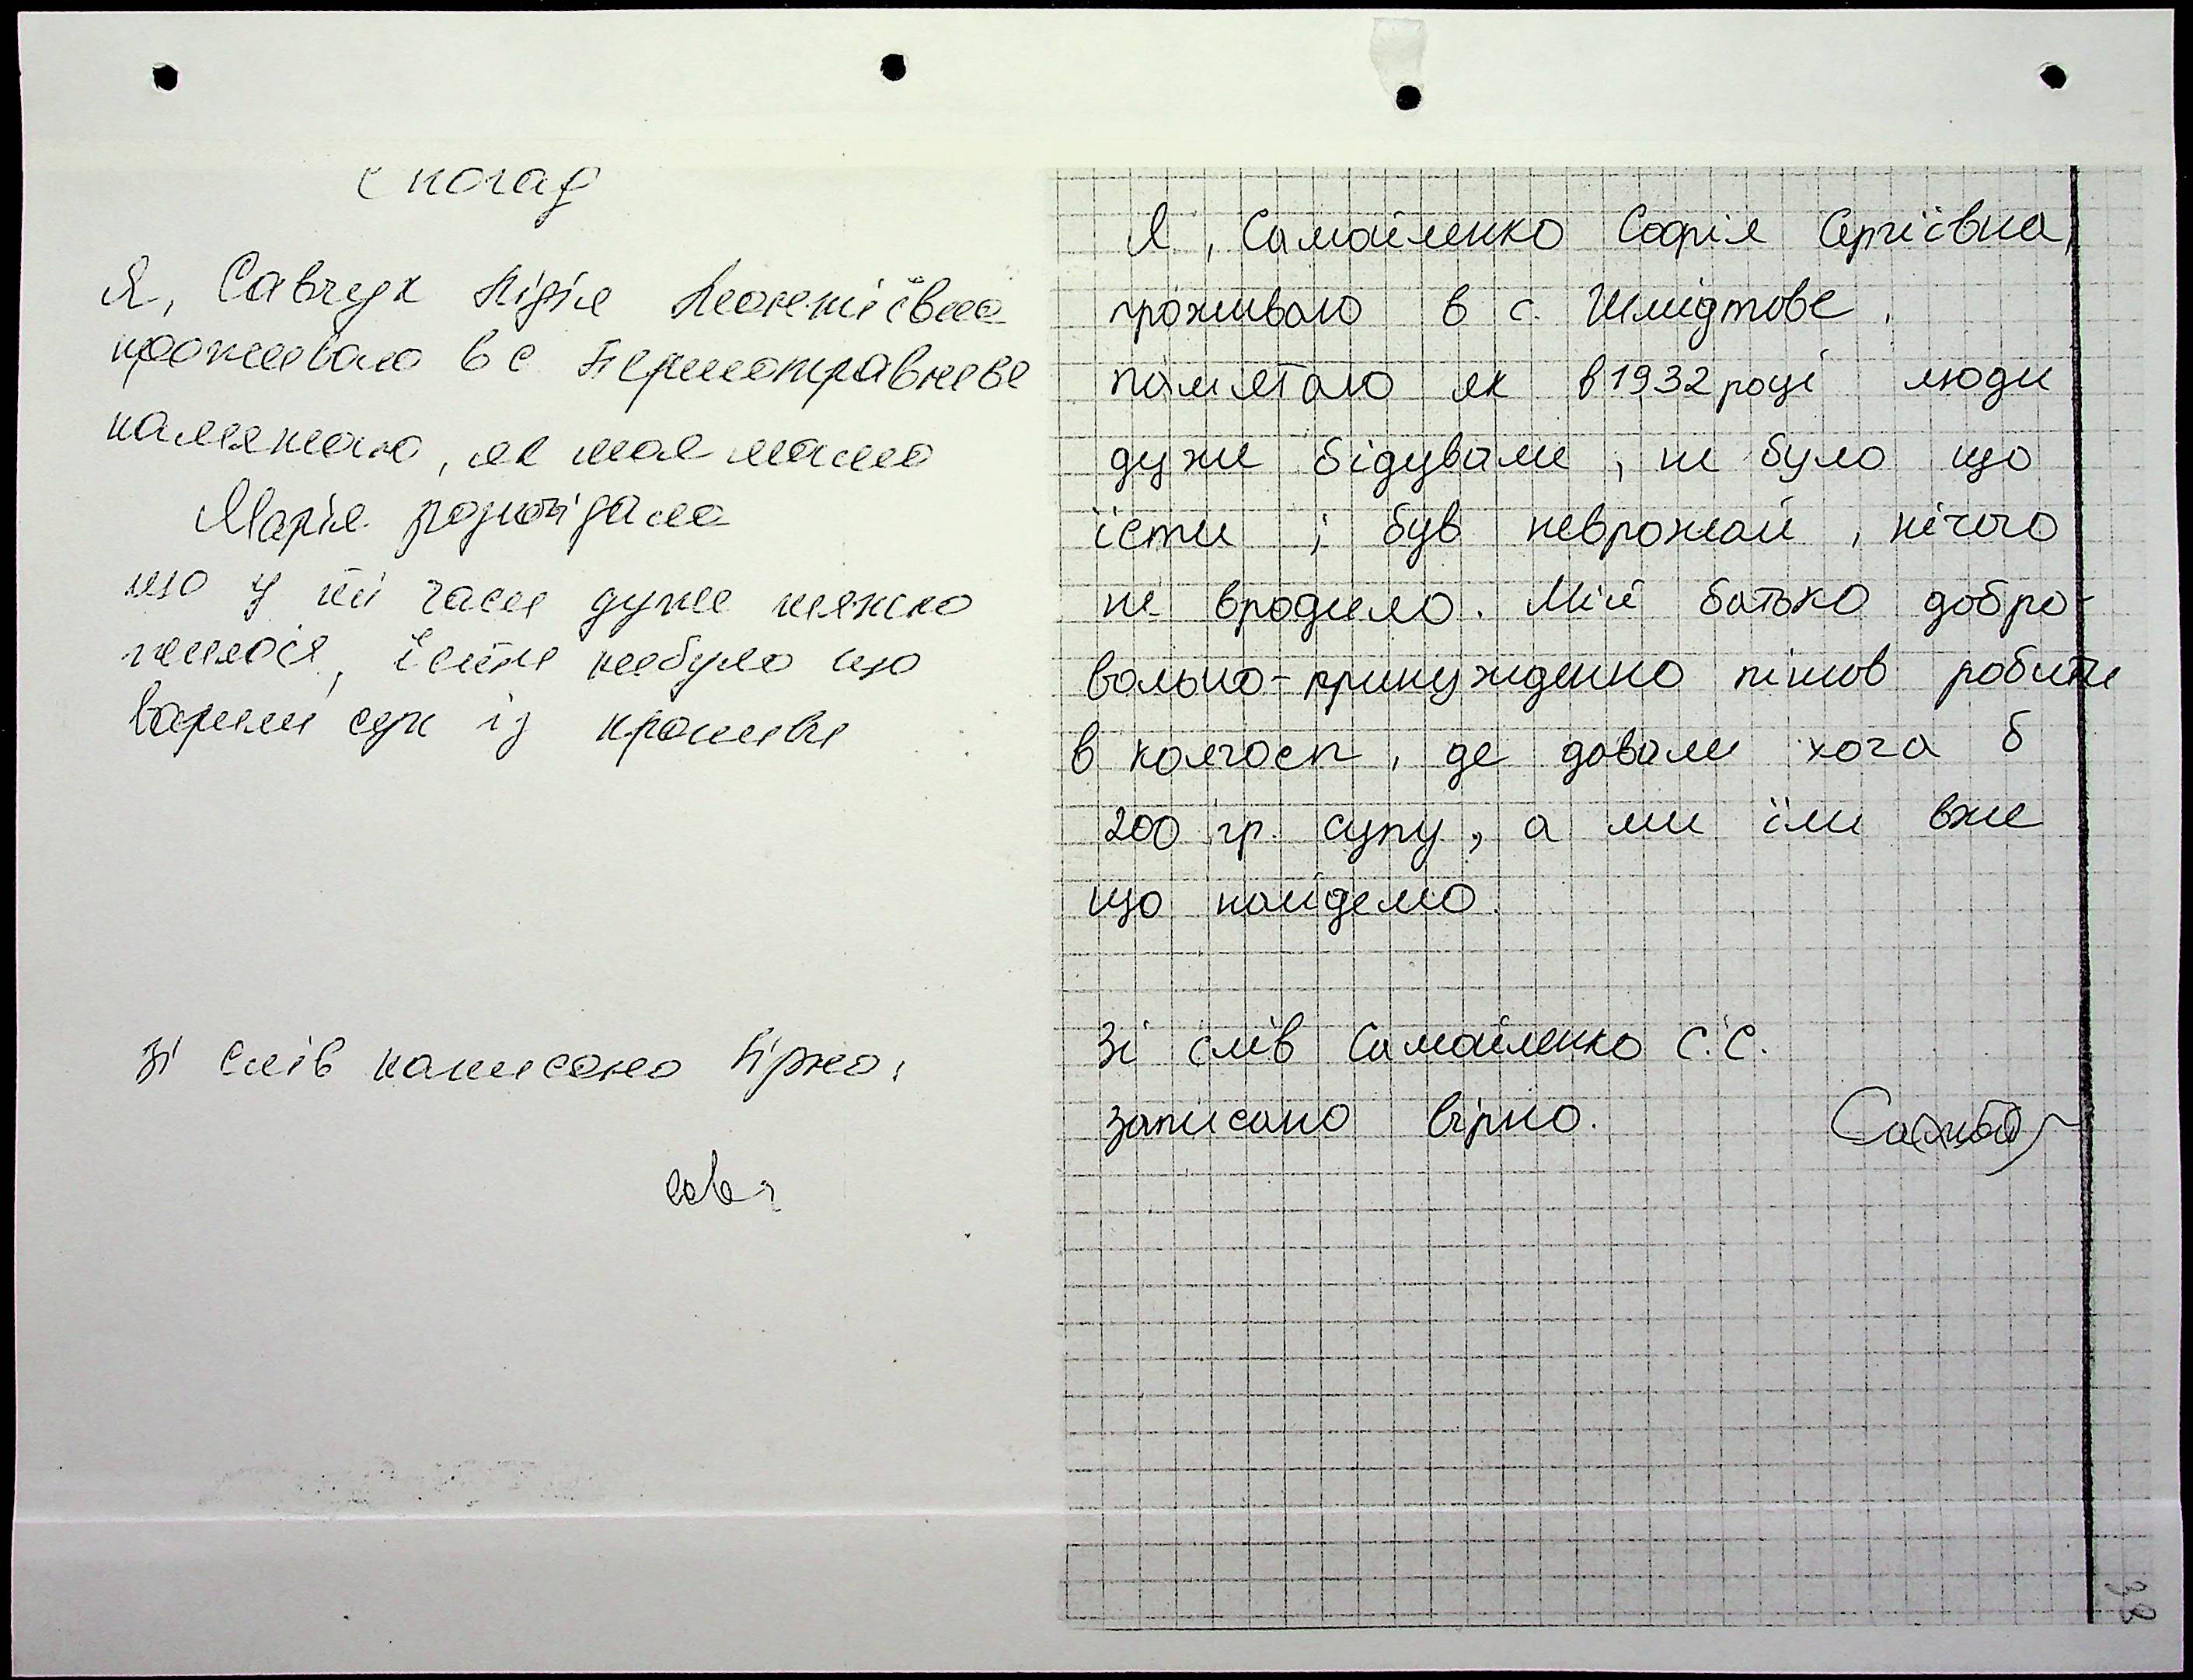 Спогад
Я, Савчук Лідія Леонтіївна
проживаю в с Першотравневе
памятаю, як моя мама
Марія розповідала
що у ті часи дуже тяжко
жилося, їсти небуло що
варили суп із кропиви
Зі слів написано вірно.
Савч
Я, Самойленко Софія Сергіївна,
проживаю в с. Шмідтове.
памятаю як в 1932 році люди
дуже бідували, не було що
їсти; був неврожай, нічого
не вродило. Мій батько добро-
вольно-принужденно пішов робити
в колгосп, де давали хоча б
200 гр. супу, а ми їли вже
що найдемо.
Зі слів Самойленко С.С.
записано вірно.
32